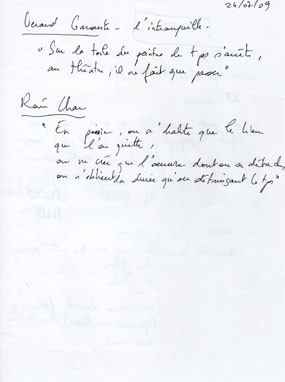 24/07/09
Gerard Garouste - l'intranquille -
"Sur la toile du peintre le tps s'arrête,
au théâtre, il ne fait que passer"
René Char
"En poésie, on n'habite que le lieu
que l'on quitte,
on ne crée que l'oeuvre dont on se détache,
on n'obtient la durée qu'en détruisant le tps"